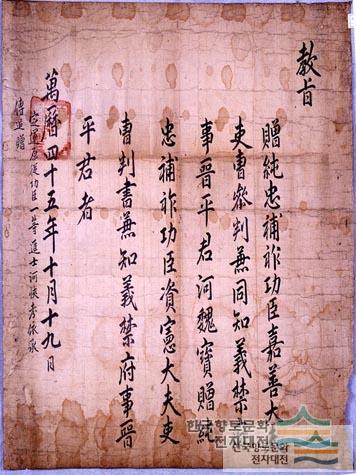 教旨
贈純忠補祚功臣嘉善大
吏曹參判兼同知義禁
事晉平君河魏寶贈純
忠補祚功臣資憲大夫吏
曹判書兼知義禁府事晉
平君者
萬曆四十五年十月十九日
定運原從功臣一等進士河恢考依承
傳追贈
한국향토문화
전자대전